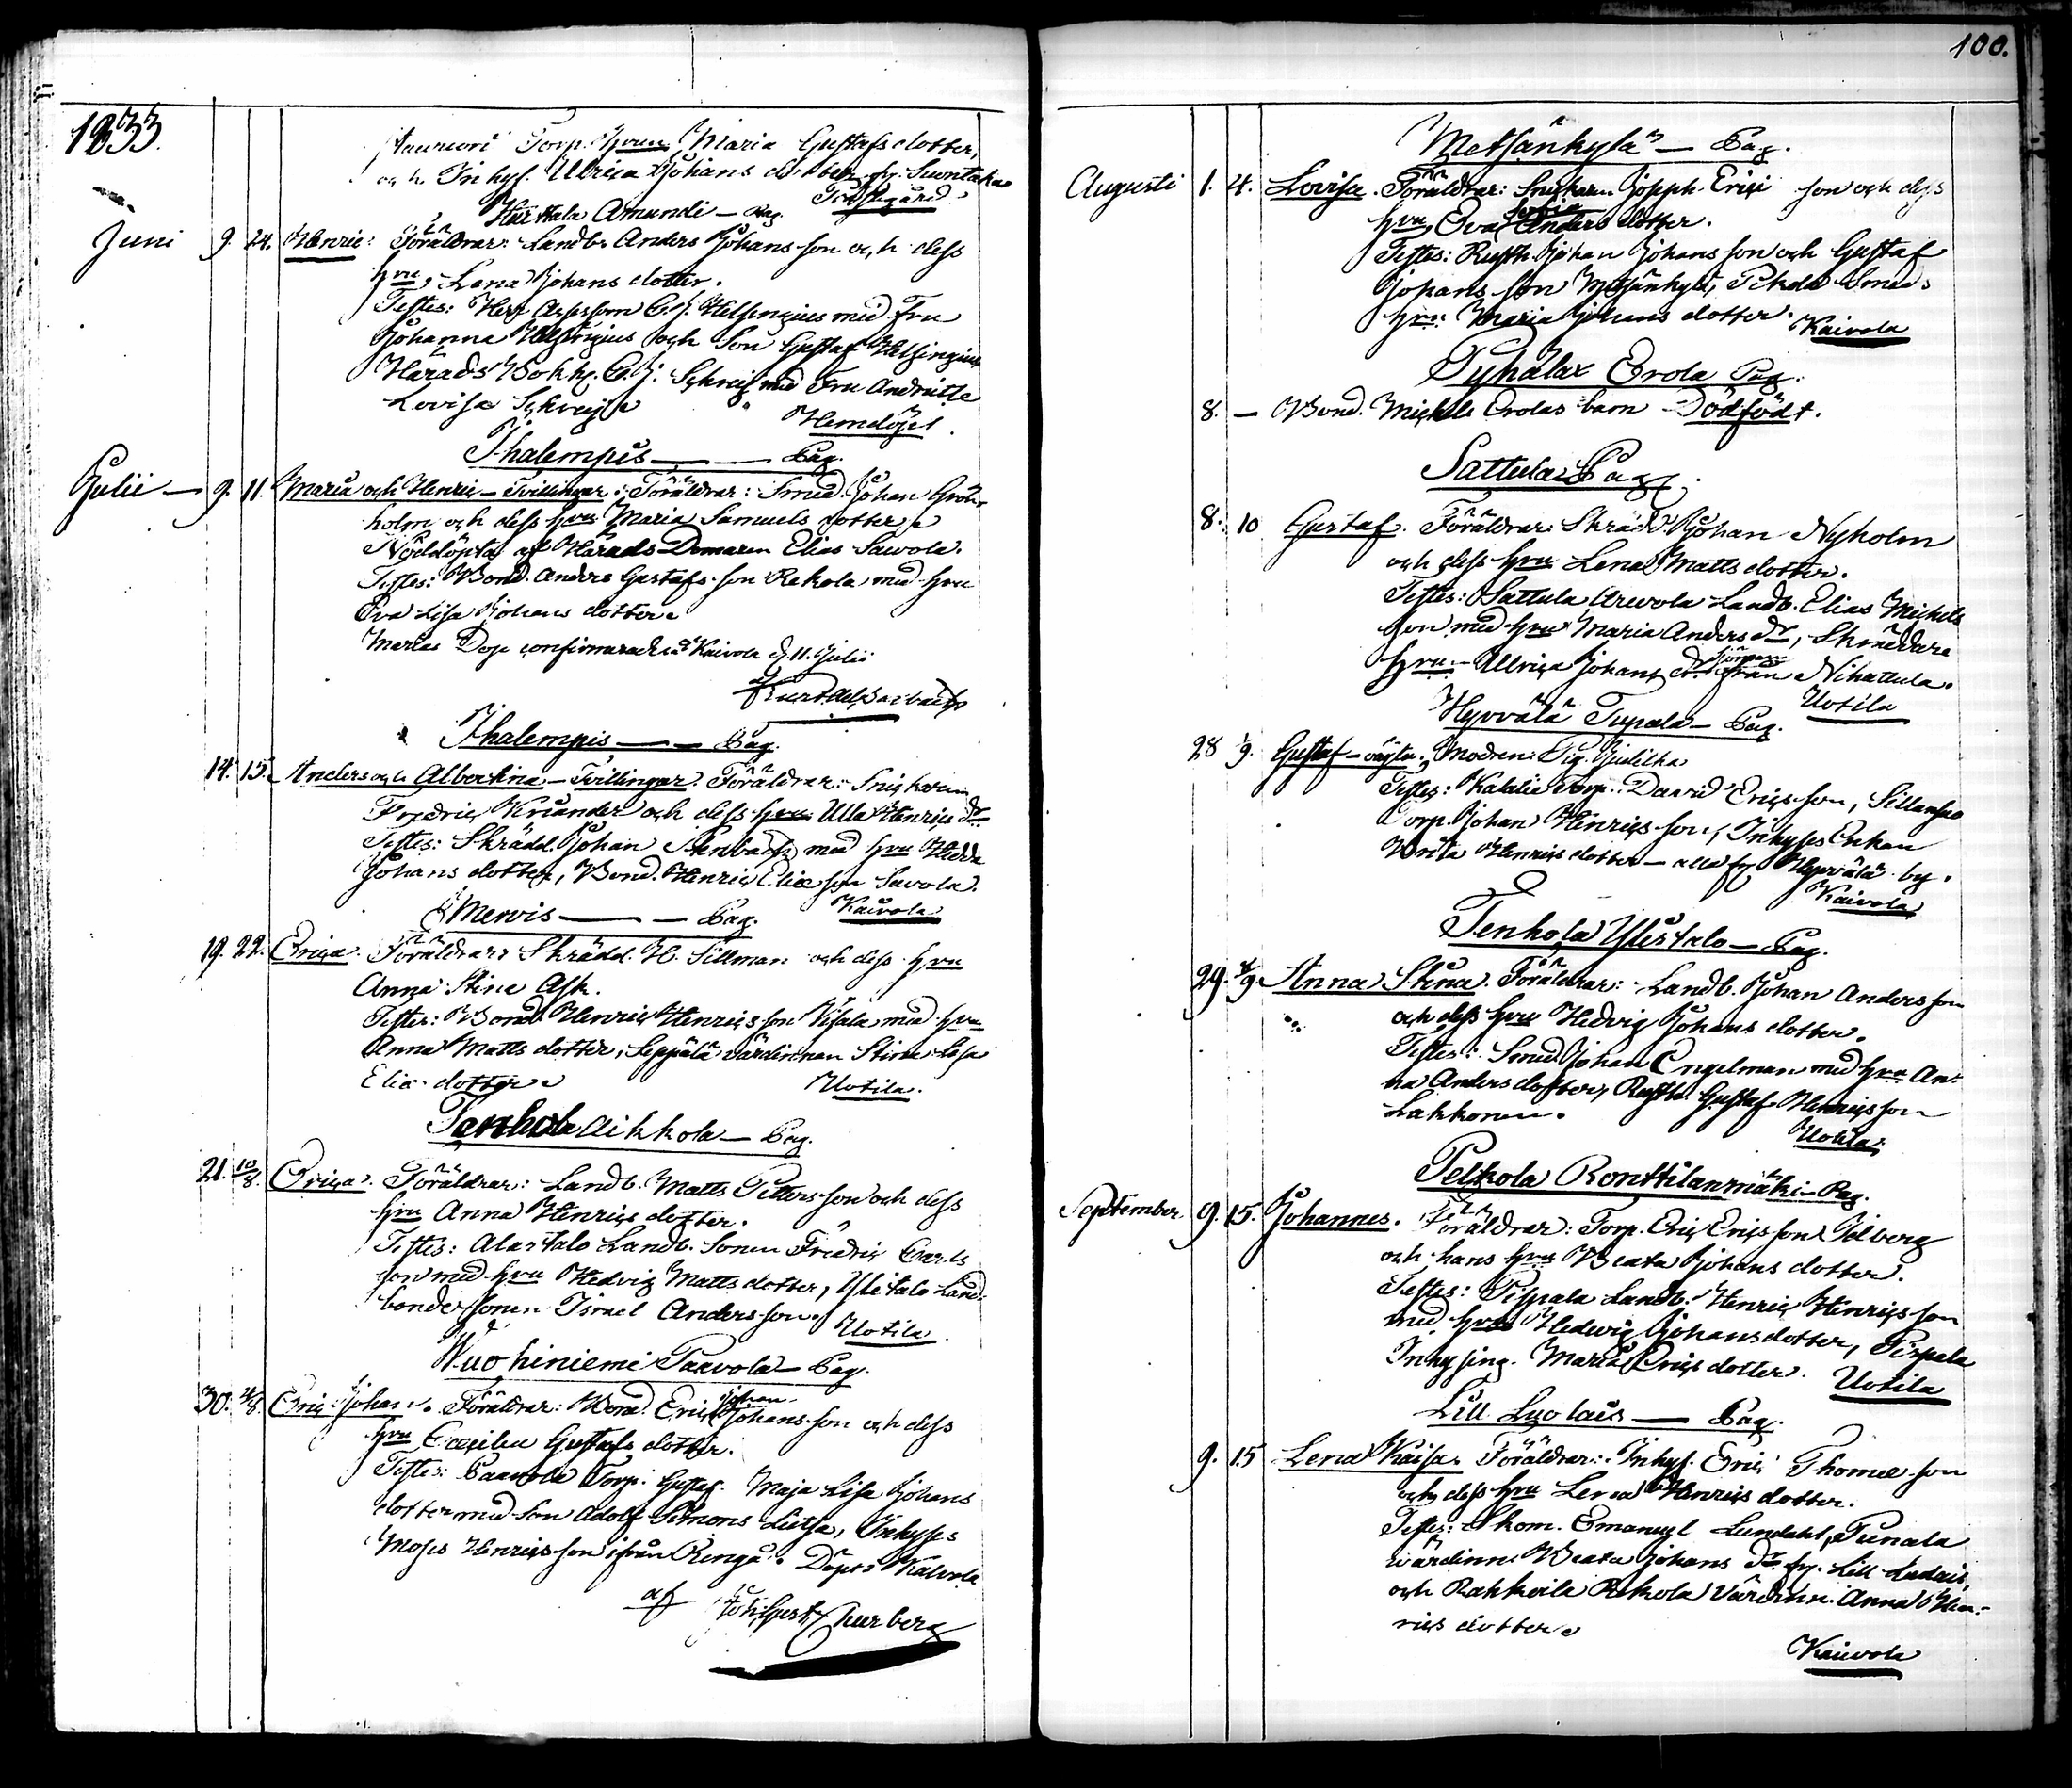 1833.
Torp. hvun Maria Gustafs dotter,
och Inhys. Ulrica Johans dotter fr. Suontaka
Hurttala Amundi — Pag.
Juni 9. 24. Henric: Föräldrar: Landb. Anders Johans son och dess
hvu Lena Johans dotter.
Testes: Herr C. J. Helsingius med Fru
Johanna Helsingius och Son Gustaf Helsingius
Härads Bokh. C. J. med Fru
Lovisa
Hemdöpt.
Ihalempis — Pag.
Julii — 9. 11. Maria och Henric — Tvillingar: Föräldrar: Smed. Johan Grön-
holm och dess hvu Maria Samuels dotter
Nöddöpta af Härads Domaren Elias Sawola.
Testes: Bond. Anders Gustafs son Rekola med hvu
Eva Lisa Johans dotter
Marias Dop confirmerades i Kaivola d. 11. Julii
af
Ihalempis — Pag.
14. 15. Anders och Albertina — Tvillingar. Föräldrar: Snickaren
Fredric och dess hvu Ulla Henrics dr.
Testes: Skrädd. Johan med hvu Hedda
Johans dotter, Bond. Henric Eliæ son Savola.
Kaivola
Mervis — Pag.
19. 22. Erica. Föräldrar: Skrädd. H. Sillman och dess hvu
Anna Stina Ask.
Testes: Bond. Henric Henrics son med hvu
Anna Matts dotter, Seppälä värdinnan Stina Lisa
Eliæ dotter
Uotila.
Tenhola Aikkola — Pag.
21. 10/8. Erica. Föräldrar: Landb. Matts Petters son och dess
hvu Anna Henrics dotter.
Testes: Alastalo Landb. Sonen Fredric Carls
son med hvu Hedvig Matts dotter, Ylistalo Land-
bonde sonen Israel Anders son.
Uotila
Wuohiniemi Paavola — Pag.
30. 4/8. Eric Johan. Föräldrar: Bond. Eric Johan Johans son och dess
hvu Cæcilia Gustafs dotter.
Testes: Paavola Torp. Gustaf. Maja Lisa Johans
dotter med son Adolf Simons Inhyses
Moses Henrics son ifrån Rengå. Döpt i Kalvola
af
100.
Metsänkylä — Pag.
Augusti 1. 4. Lovisa. Föräldrar: Snickaren Joseph Erici son och dess
hvu Eva Sofia Anders dotter.
Testes: Rusth. Johan Johans son och Gustaf
Johans son Metsänkylä, Smeds
hvu: Maria Johans dotter.
Kaivola
Pyhälax Erola Pag.
8. — Bond. Michels Erolas barn Dödfödt.
Sattula Pag.
8. 10 Gustaf. Föräldrar: Skrädd. Johan Nyholm
och dess hvu Lena Matts dotter.
Testes: Sattula Arvola Landb. Elias Michels
son med hvu Maria Anders dr, Skräddare
hvu Ulrica Johans dr. ifrån Nihattula.
Uotila
Hyvvälä Tupala — Pag.
28 1/9. Gustaf — oägta. Modren: Pig. Juditha
Testes: Torp. David Erics son, Sillanpää
Torp. Johan Henrics son, Inhyses Enkan
Brita Henrics dotter — alla fr. Hyvvälä by.
Kaivola
Tenhola Ylistalo — Pag.
29. 4/9. Anna Stina. Föräldrar: Landb. Johan Anders son
och dess hvu Hedvig Johans dotter.
Testes: Smed. Johan Engelman med hvu An-
na Anders dotter, Rusth. Gustaf Henrics son
Lakkonen.
Uotila
Pelkola Ronttilanmäki — Pag.
September 9. 15. Johannes. Föräldrar: Torp. Eric Erics son
och hans hvu Beata Johans dotter.
Testes: Pispala Landb. Henric Henrics son
med hvu Hedwig Johans dotter, Pispala
Inhysing. Maria Erics dotter.
Uotila
Lill Luolais — Pag.
9. 15 Lena Kaisa. Föräldrar: Inhys. Eric Thomæ son
och dess hvu Lena Henrics dotter.
Testes: Skom. Emanuel Lundahl, Punala
wärdinn. Beata Johans dr. fr. Lill Luolais,
och Rahkoila Rekola Värdinn. Anna Hen-
rics dotter
Kaivola